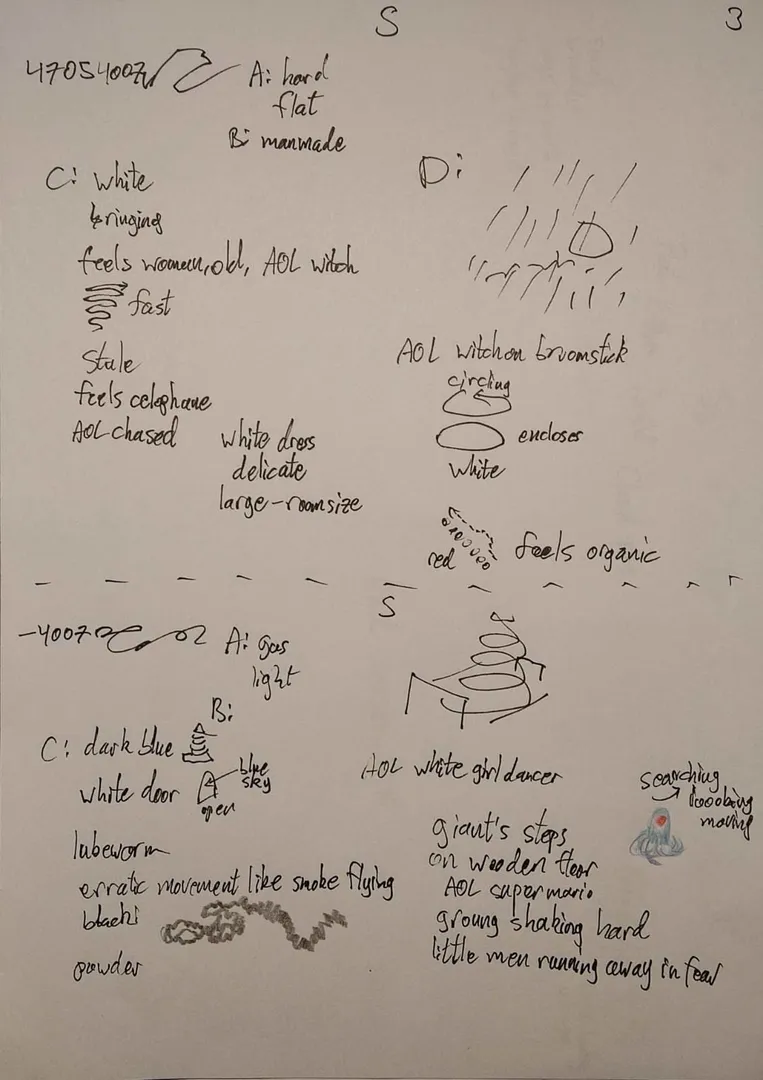 S
3
47054007
A: hard
flat
B: manmade
C: white
bringing
feels woman, old, AOL witch
fast
Stale
feels celephane
AOL chased
white dress
delicate
large-roomsize
D:
AOL witch on broomstick
circling
encloses
White
red
feels organic
S
-4007
A: gas
light
B:
C: dark blue
white door
blue
sky
open
AOL white girl dancer
searching
moving
tubeworm
erratic movement like smoke flying
powder
giant's steps
on wooden floor
AOL supermario
groung shaking hard
little men running away in fear